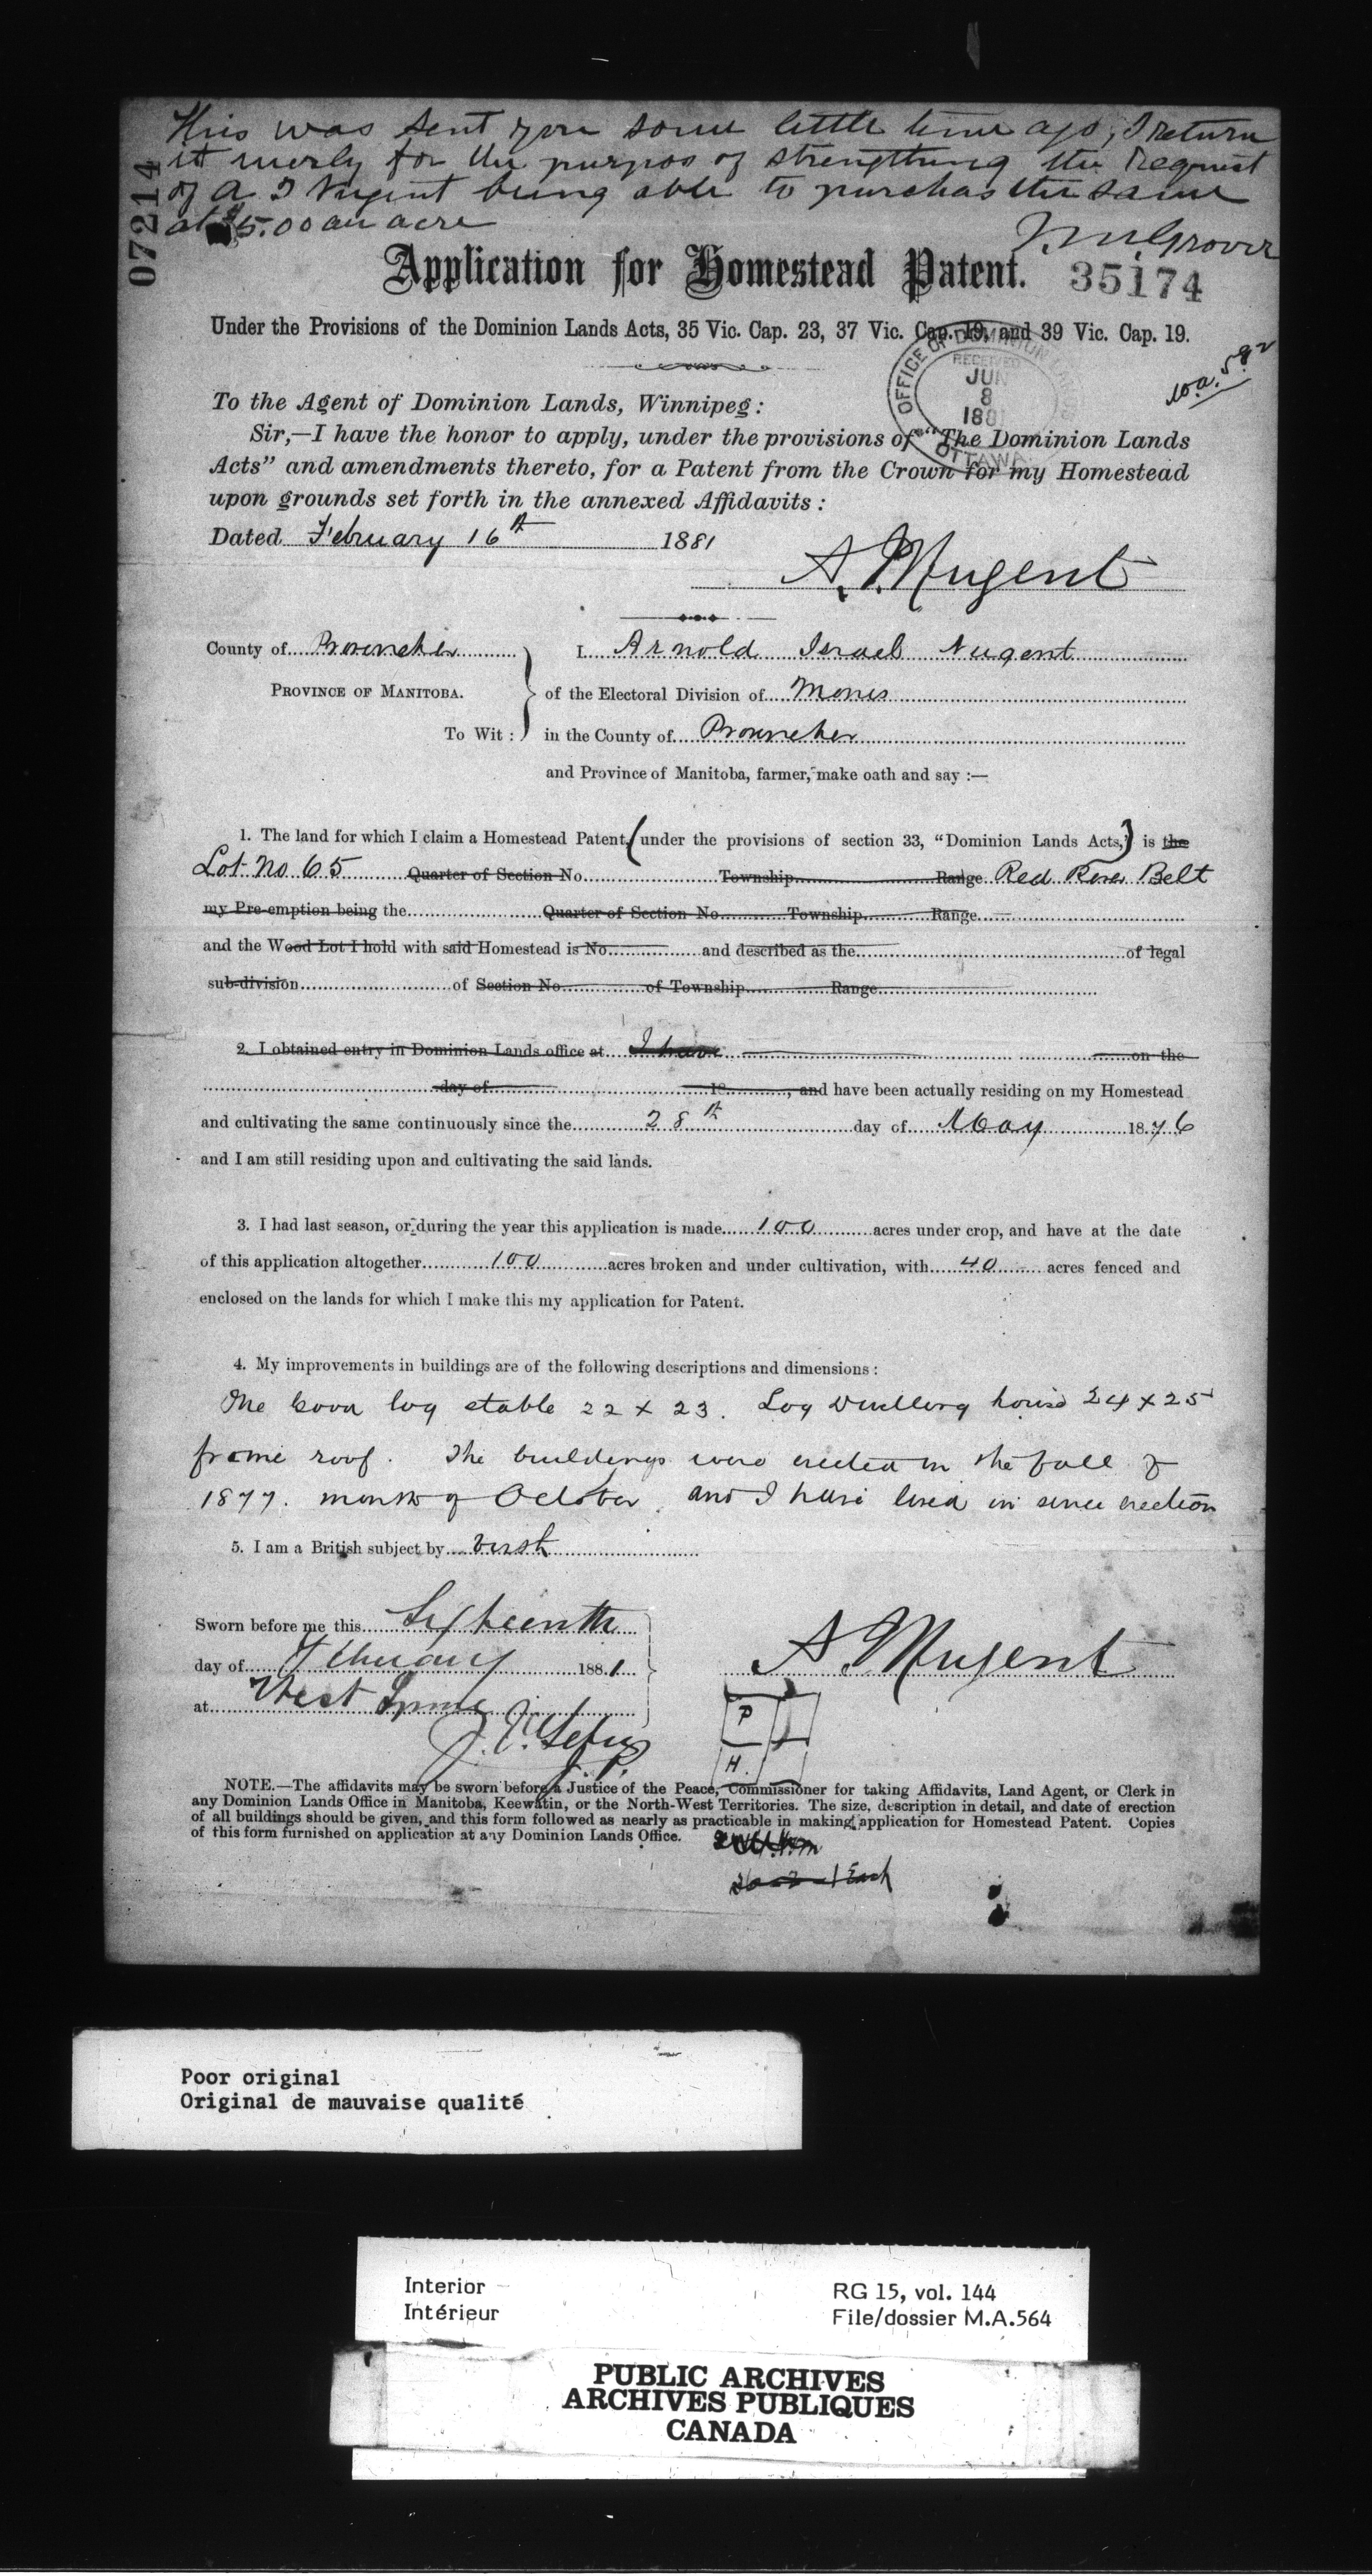 This was sent you some little time ago, I return
it merly for the purpos of strengthning the request
of A I Nugent being able to purchas the same
at $5.00 an acre
Grover
07214
Application for Homestead Patent.
35174
Under the Provisions of the Dominion Lands Acts, 35 Vic. Cap. 23, 37 Vic. Cap. 19, and 39 Vic. Cap. 19.
OFFICE OF DOMINION LANDS
RECEIVED
JUN
8
188
OTTAWA
To the Agent of Dominion Lands, Winnipeg:
Sir,—I have the honor to apply, under the provisions of “The Dominion Lands
Acts” and amendments thereto, for a Patent from the Crown for my Homestead
upon grounds set forth in the annexed Affidavits:
Dated February 16th 1881
A. I. Nugent
County of Provencher
I Arnold Israel Nugent
PROVINCE OF MANITOBA.
of the Electoral Division of Morris
To Wit:
in the County of Provencher
and Province of Manitoba, farmer, make oath and say:—
1. The land for which I claim a Homestead Patent, (under the provisions of section 33, “Dominion Lands Acts,”) is the
Lot No 65 Quarter of Section No. Township Range Red River Belt
my Pre-emption being the Quarter of Section No. Township Range
and the Wood Lot I hold with said Homestead is No. and described as the of legal
sub-division of Section No. of Township Range
2. I obtained entry in Dominion Lands office at I have on the
day of 18 , and have been actually residing on my Homestead
and cultivating the same continuously since the 28th day of May 1876
and I am still residing upon and cultivating the said lands.
3. I had last season, or during the year this application is made 100 acres under crop, and have at the date
of this application altogether 100 acres broken and under cultivation, with 40 acres fenced and
enclosed on the lands for which I make this my application for Patent.
4. My improvements in buildings are of the following descriptions and dimensions:
One good log stable 22 x 23. Log Dwelling house 24 x 25
frame roof. The buildings were erected in the fall of
1877. month of October. and I have lived in since erection
5. I am a British subject by birth
Sworn before me this Sixteenth
day of February 1881
at West Lynne
A. I. Nugent
J.P.
P
H.
NOTE.—The affidavits may be sworn before a Justice of the Peace, Commissioner for taking Affidavits, Land Agent, or Clerk in
any Dominion Lands Office in Manitoba, Keewatin, or the North-West Territories. The size, description in detail, and date of erection
of all buildings should be given, and this form followed as nearly as practicable in making application for Homestead Patent. Copies
of this form furnished on application at any Dominion Lands Office.
Poor original
Original de mauvaise qualité
Interior
Intérieur
RG 15, vol. 144
File/dossier M.A.564
PUBLIC ARCHIVES
ARCHIVES PUBLIQUES
CANADA